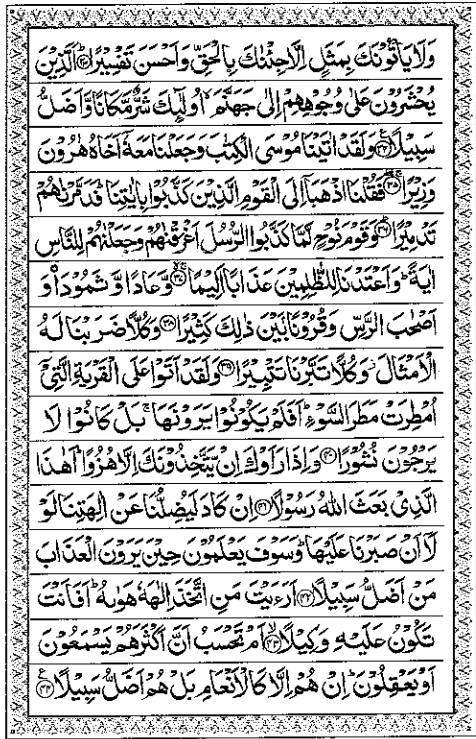 وَلَا يَأْتُوْنَكَ بِمَثَلٍ اِلَّا جِئْنٰكَ بِالْحَقِّ وَاَحْسَنَ تَفْسِيْرًا ﴿۳۳﴾ اَلَّذِيْنَ
يُحْشَرُوْنَ عَلٰى وُجُوْهِهِمْ اِلٰى جَهَنَّمَ اُولٰٓئِكَ شَرٌّ مَّكَانًا وَّاَضَلُّ
سَبِيْلًا ﴿۳۴﴾ وَلَقَدْ اٰتَيْنَا مُوْسَى الْكِتٰبَ وَجَعَلْنَا مَعَهٗٓ اَخَاهُ هٰرُوْنَ
وَزِيْرًا ﴿۳۵﴾ فَقُلْنَا اذْهَبَآ اِلَى الْقَوْمِ الَّذِيْنَ كَذَّبُوْا بِاٰيٰتِنَا فَدَمَّرْنٰهُمْ
تَدْمِيْرًا ﴿۳۶﴾ وَقَوْمَ نُوْحٍ لَّمَّا كَذَّبُوا الرُّسُلَ اَغْرَقْنٰهُمْ وَجَعَلْنٰهُمْ لِلنَّاسِ
اٰيَةً وَاَعْتَدْنَا لِلظّٰلِمِيْنَ عَذَابًا اَلِيْمًا ﴿۳۷﴾ وَّعَادًا وَّثَمُوْدَا۟ وَ
اَصْحٰبَ الرَّسِّ وَقُرُوْنًۢا بَيْنَ ذٰلِكَ كَثِيْرًا ﴿۳۸﴾ وَكُلًّا ضَرَبْنَا لَهُ
الْاَمْثَالَ وَكُلًّا تَبَّرْنَا تَتْبِيْرًا ﴿۳۹﴾ وَلَقَدْ اَتَوْا عَلَى الْقَرْيَةِ الَّتِيْٓ
اُمْطِرَتْ مَطَرَ السَّوْءِ اَفَلَمْ يَكُوْنُوْا يَرَوْنَهَا بَلْ كَانُوْا لَا
يَرْجُوْنَ نُشُوْرًا ﴿۴۰﴾ وَاِذَا رَاَوْكَ اِنْ يَّتَّخِذُوْنَكَ اِلَّا هُزُوًا اَهٰذَا
الَّذِيْ بَعَثَ اللّٰهُ رَسُوْلًا ﴿۴۱﴾ اِنْ كَادَ لَيُضِلُّنَا عَنْ اٰلِهَتِنَا لَوْ
لَآ اَنْ صَبَرْنَا عَلَيْهَا وَسَوْفَ يَعْلَمُوْنَ حِيْنَ يَرَوْنَ الْعَذَابَ
مَنْ اَضَلُّ سَبِيْلًا ﴿۴۲﴾ اَرَءَيْتَ مَنِ اتَّخَذَ اِلٰهَهٗ هَوٰىهُ اَفَاَنْتَ
تَكُوْنُ عَلَيْهِ وَكِيْلًا ﴿۴۳﴾ اَمْ تَحْسَبُ اَنَّ اَكْثَرَهُمْ يَسْمَعُوْنَ
اَوْ يَعْقِلُوْنَ اِنْ هُمْ اِلَّا كَالْاَنْعَامِ بَلْ هُمْ اَضَلُّ سَبِيْلًا ﴿۴۴﴾